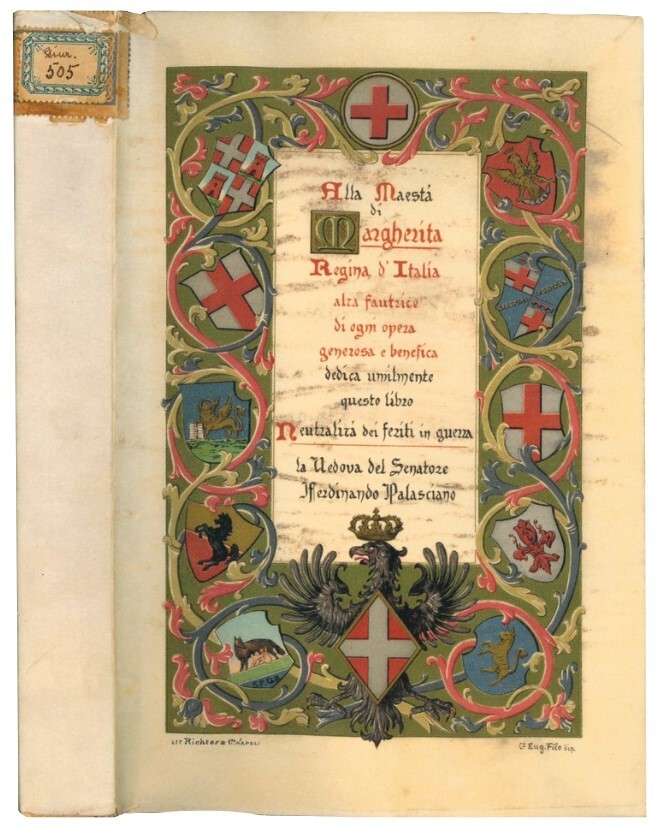 Giur.
505
Alla Maestá
di
Margherita
Regina d'Italia
alta fautrice
di ogni opera
generosa e benefica
dedica umilmente
questo libro
Neutralitá dei feriti in guerra
la Vedova del Senatore
Ferdinando Palasciano
S.P.Q.R.
LIT. Richter & Co. NAPOLI
Eug. Filo dip.